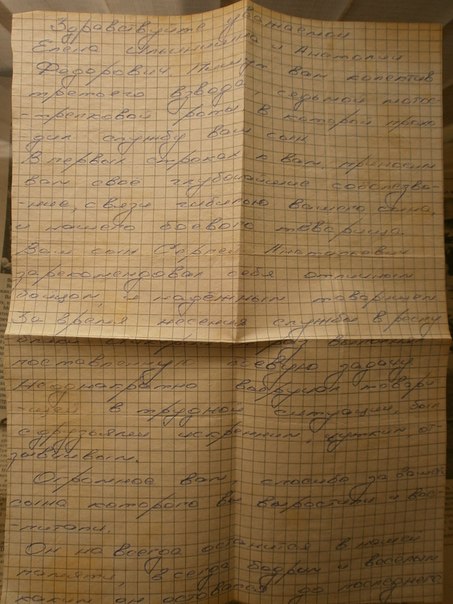 Здравствуйте уважаемые
Елена и Анатолий
Фёдорович. Пишет вам колектив
третьего взвода, седьмой мото-
-стрелковой роты в которой прохо-
дил службу ваш сын.
В первых строках к вам, приносим
вам свое глубочайшие соболезно-
-ние, связи гибелью вашего сына,
и нашего боевого товарища.
Ваш сын Сергей Анатольевич
зарекомендовал себя отличным
бойцом, и надежным товарищем
За время несения службы в
поставленную боевую задачу.
Неоднократно выручал товари-
-щей в трудной ситуации, был
с друзьями искренним, чутким, от-
зывчивым.
Огромное вам, спасибо за вашего
сына которого вы вырастили и вос-
-питали.
Он на всегда останится в нашей
памяти, всегда бодрым и веселым
каким он оставался до последнего